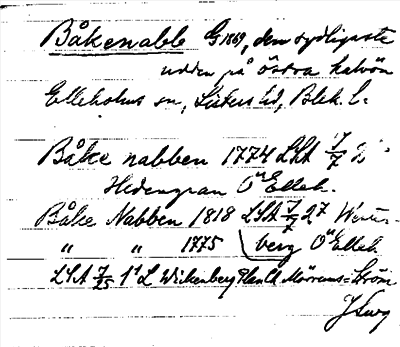 Båkenabb G 1869, den sydligaste
udden på östra halvön
Elleholms sn, Listers hd, Blek. l.
Båke nabben 1774 LSA 7/7 2
Hedengran Ö Ellek.
Båke Nabben 1818 LSA 7/7 27 Wester-
" " 1775 berg Ö Ellek
LSA 7/25 1 L Wickenberg Mörrums-Ström